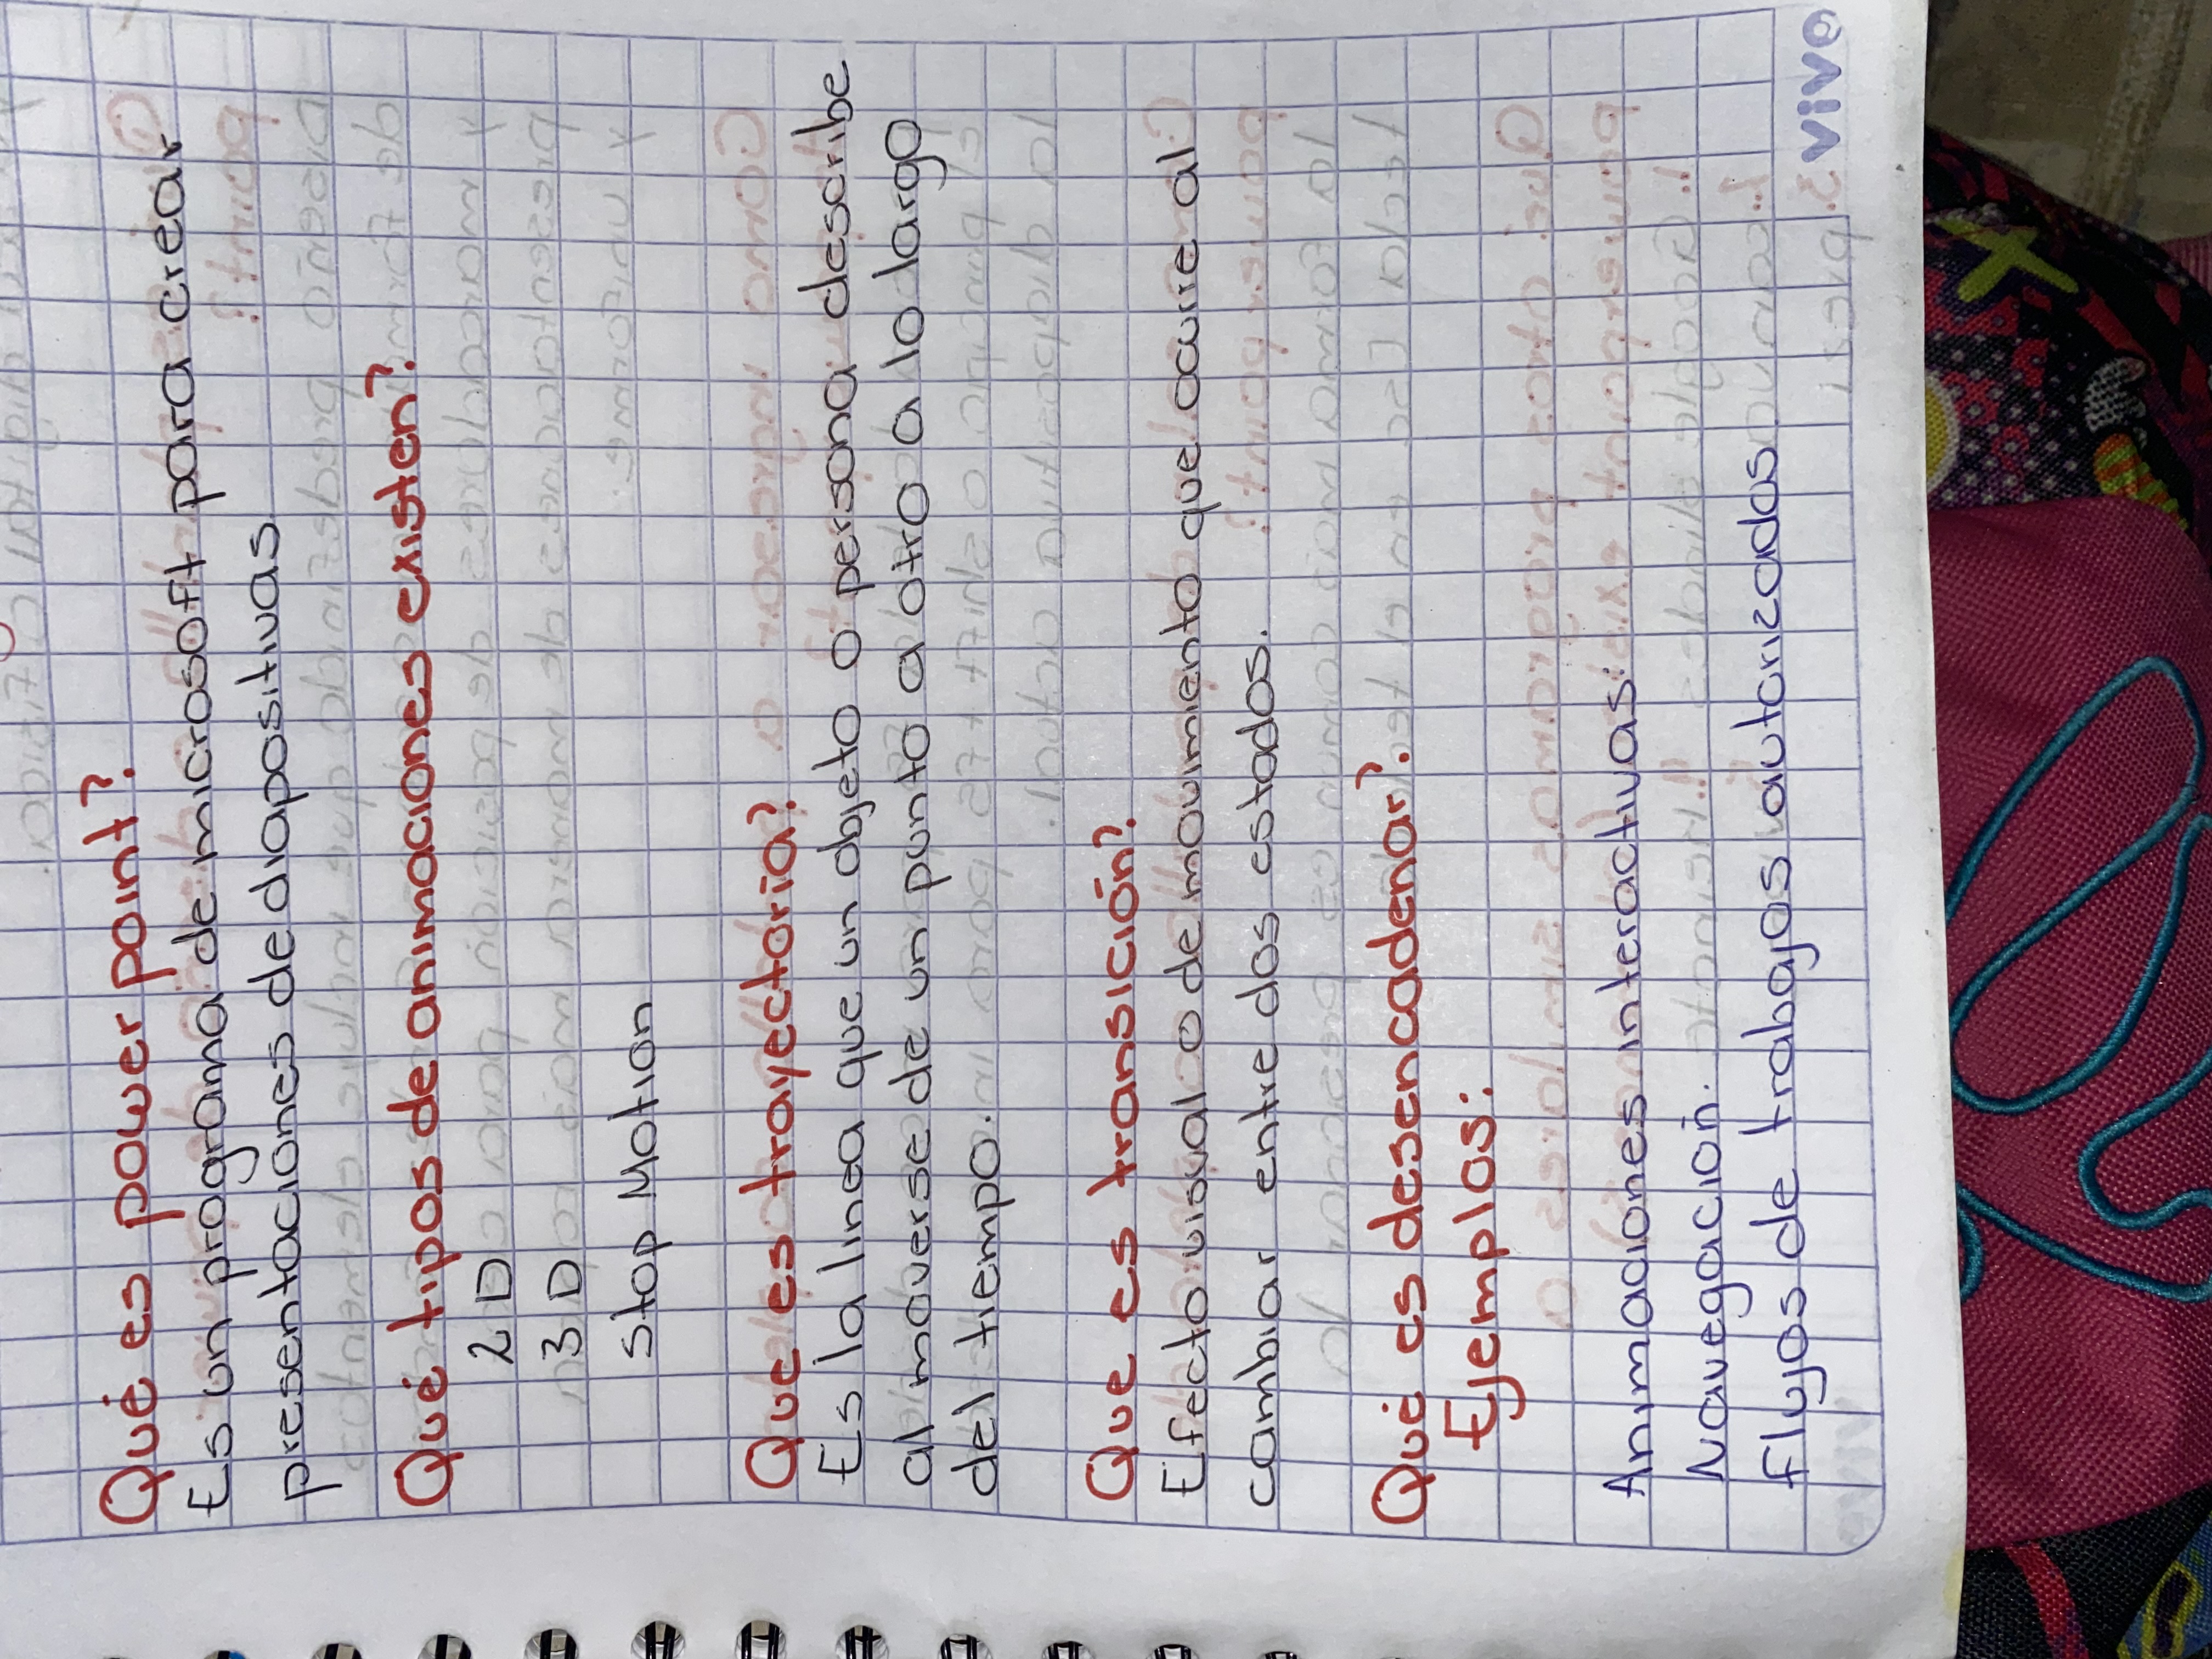 Qué es power point?
Es un programa de microsoft para crear
presentaciones de diapositivas.
Qué tipos de animaciones existen?
2D
3D
Stop Motion
Que es trayectoria?
Es la linea que un objeto o persona describe
al moverse de un punto a otro a lo largo
del tiempo.
Que es transición?
Efecto visual o de movimiento que ocurre al
cambiar entre dos estados.
Qué es desencadenar?
Ejemplos:
Animaciones interactivas:
Navegación.
flujos de trabajos autorizados.
vivo